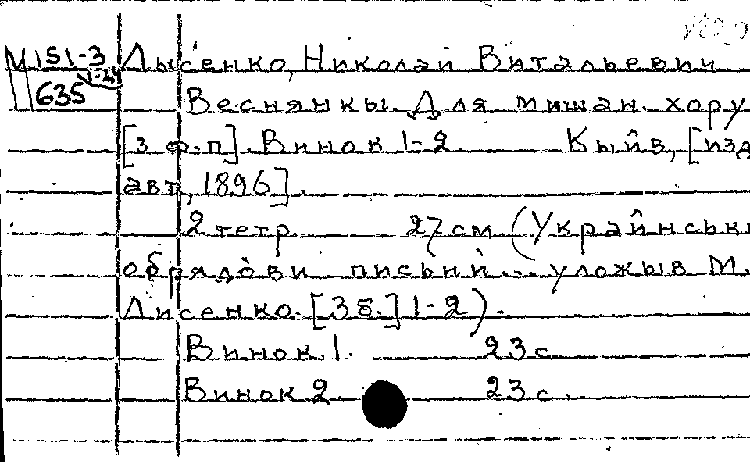 М 151-3 Лысенко, Николай Витальевич
1-24
635 Веснянкы. Для мишан. хору
[з ф.-п]. Винок 1-2 Кыйв, [изд
авт, 1896].
2 тетр. 27 см (Украйнськи
обрядови письнй... уложыв М.
Лисенко. [Зб.] 1-2).
Винок 1. 23 с
Винок 2. 23 с.